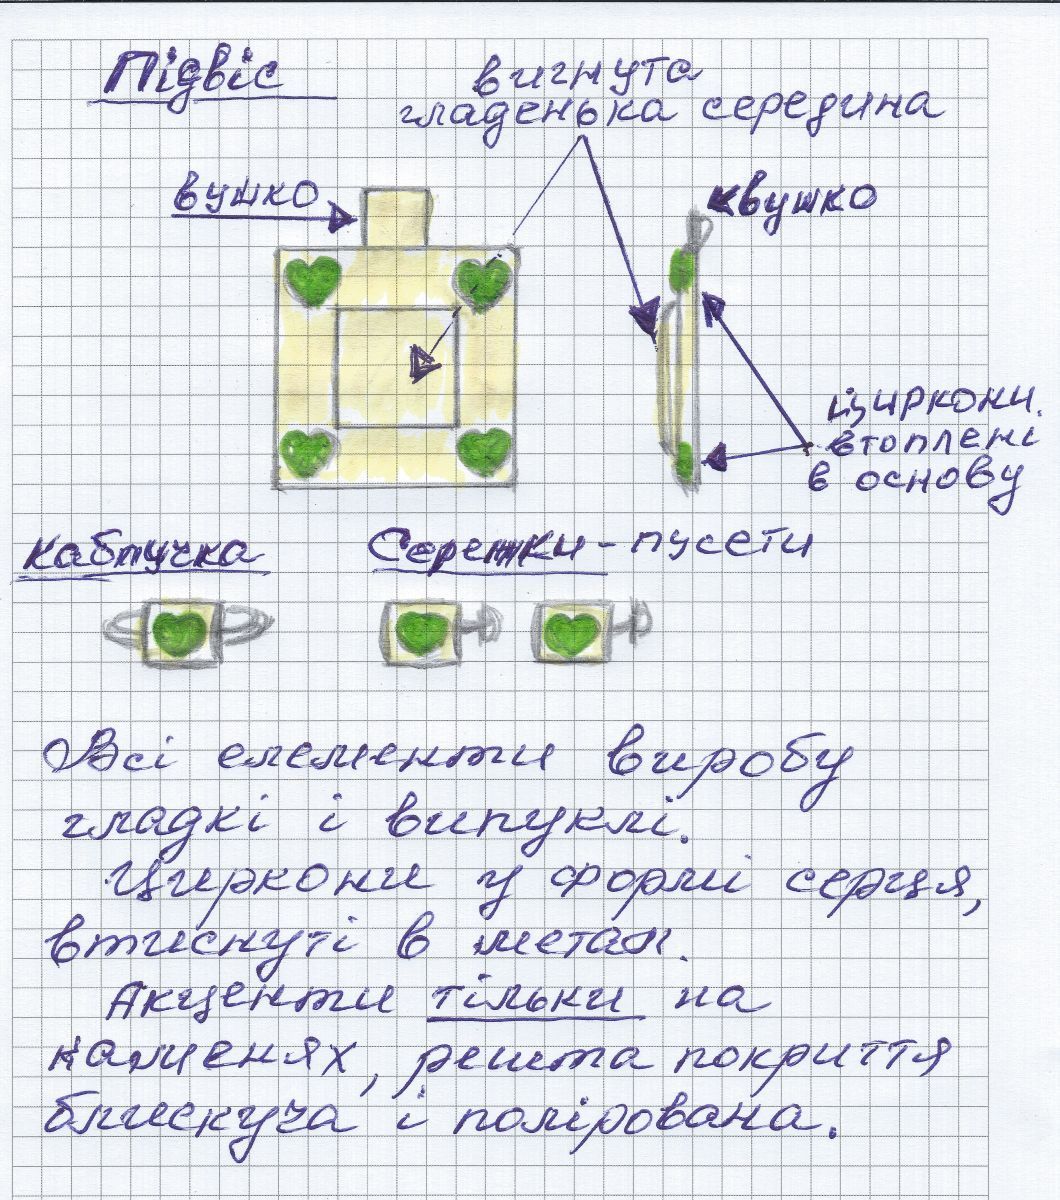 Підвіс
вигнута
гладенька середина
вушко
вушко
циркони
втоплені
в основу
каблучка
Сережки - пусети
Всі елементи виробу
гладкі і випуклі.
Циркони у формі серця,
втиснуті в метал.
Акценти тільки на
каменях, решта покриття
блискуча і полірована.